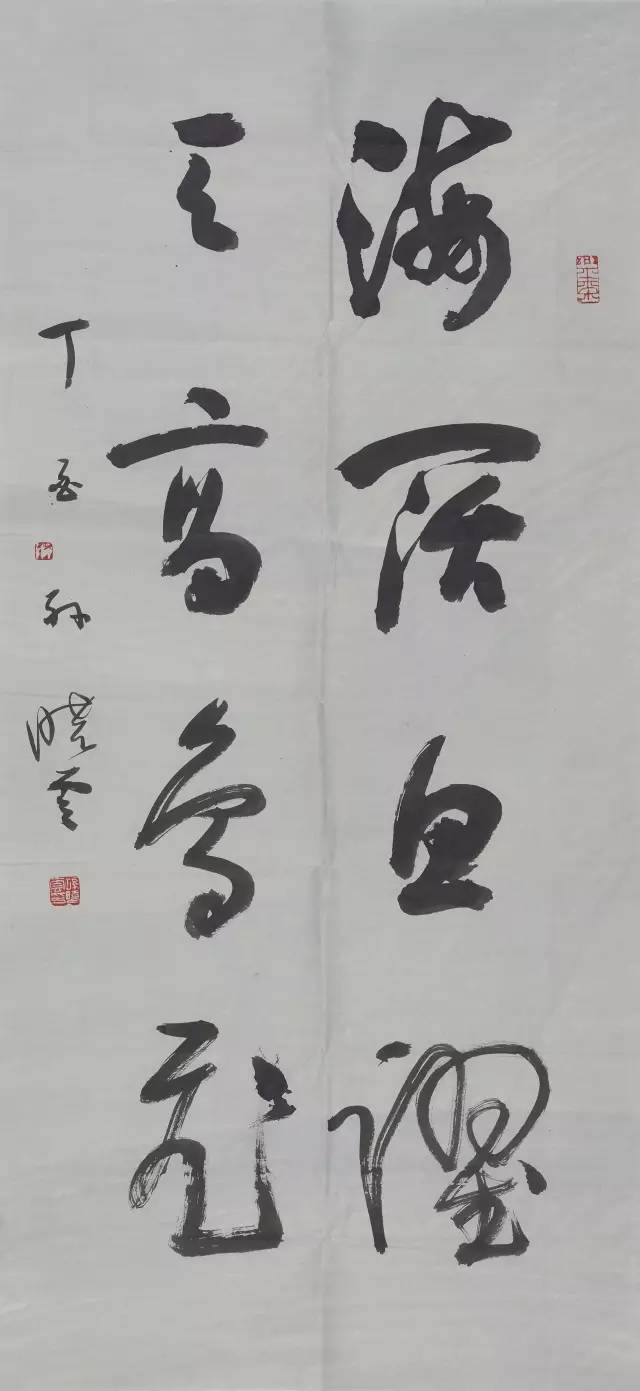 海阔鱼跃
天高鸟飞
丁酉 孙晓云